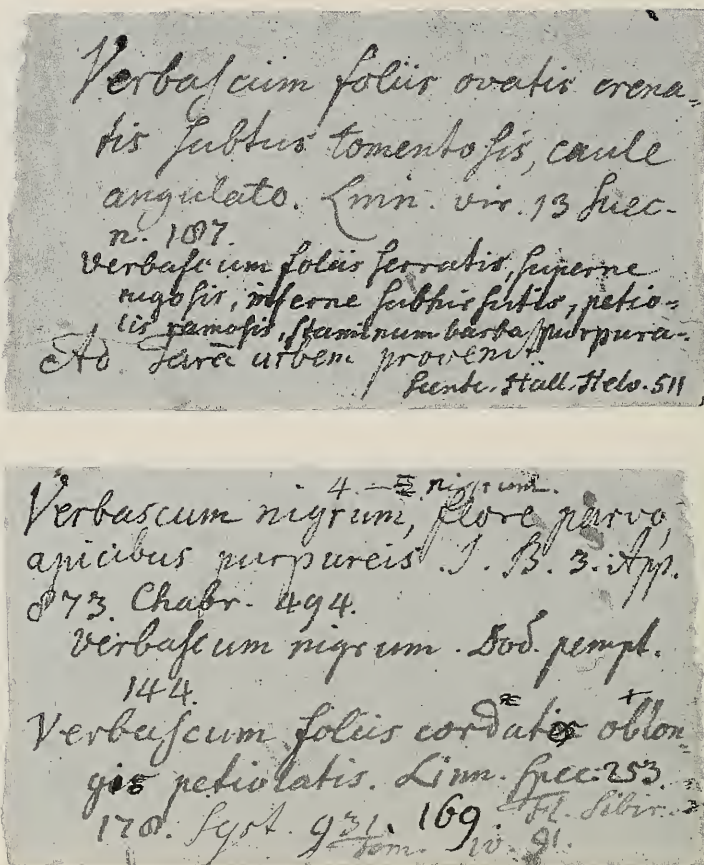 Verbaſcum foliis ovatis crena-
tis ſubtus tomentoſis, caule
angulato. Linn. vir. 13 Suec-
n. 187.
Verbaſcum foliis ſerratis, ſuperne
rugoſis, inferne ſubhirſutis, petio-
lis ramoſis, ſtaminum barba purpura-
Ad urbem provenit
Hall. Helv. 511
4. nigrum.
Verbascum nigrum, flore parvo,
apicibus purpureis. J. B. 3. App.
873. Chabr. 494.
Verbaſcum nigrum. Dod. pempt.
144.
Verbaſcum foliis cordatis oblon-
gis petiolatis. Linn. Spec. 253.
178. Syst. 931. 169. Fl. Sibir.
tom. iv. 91.